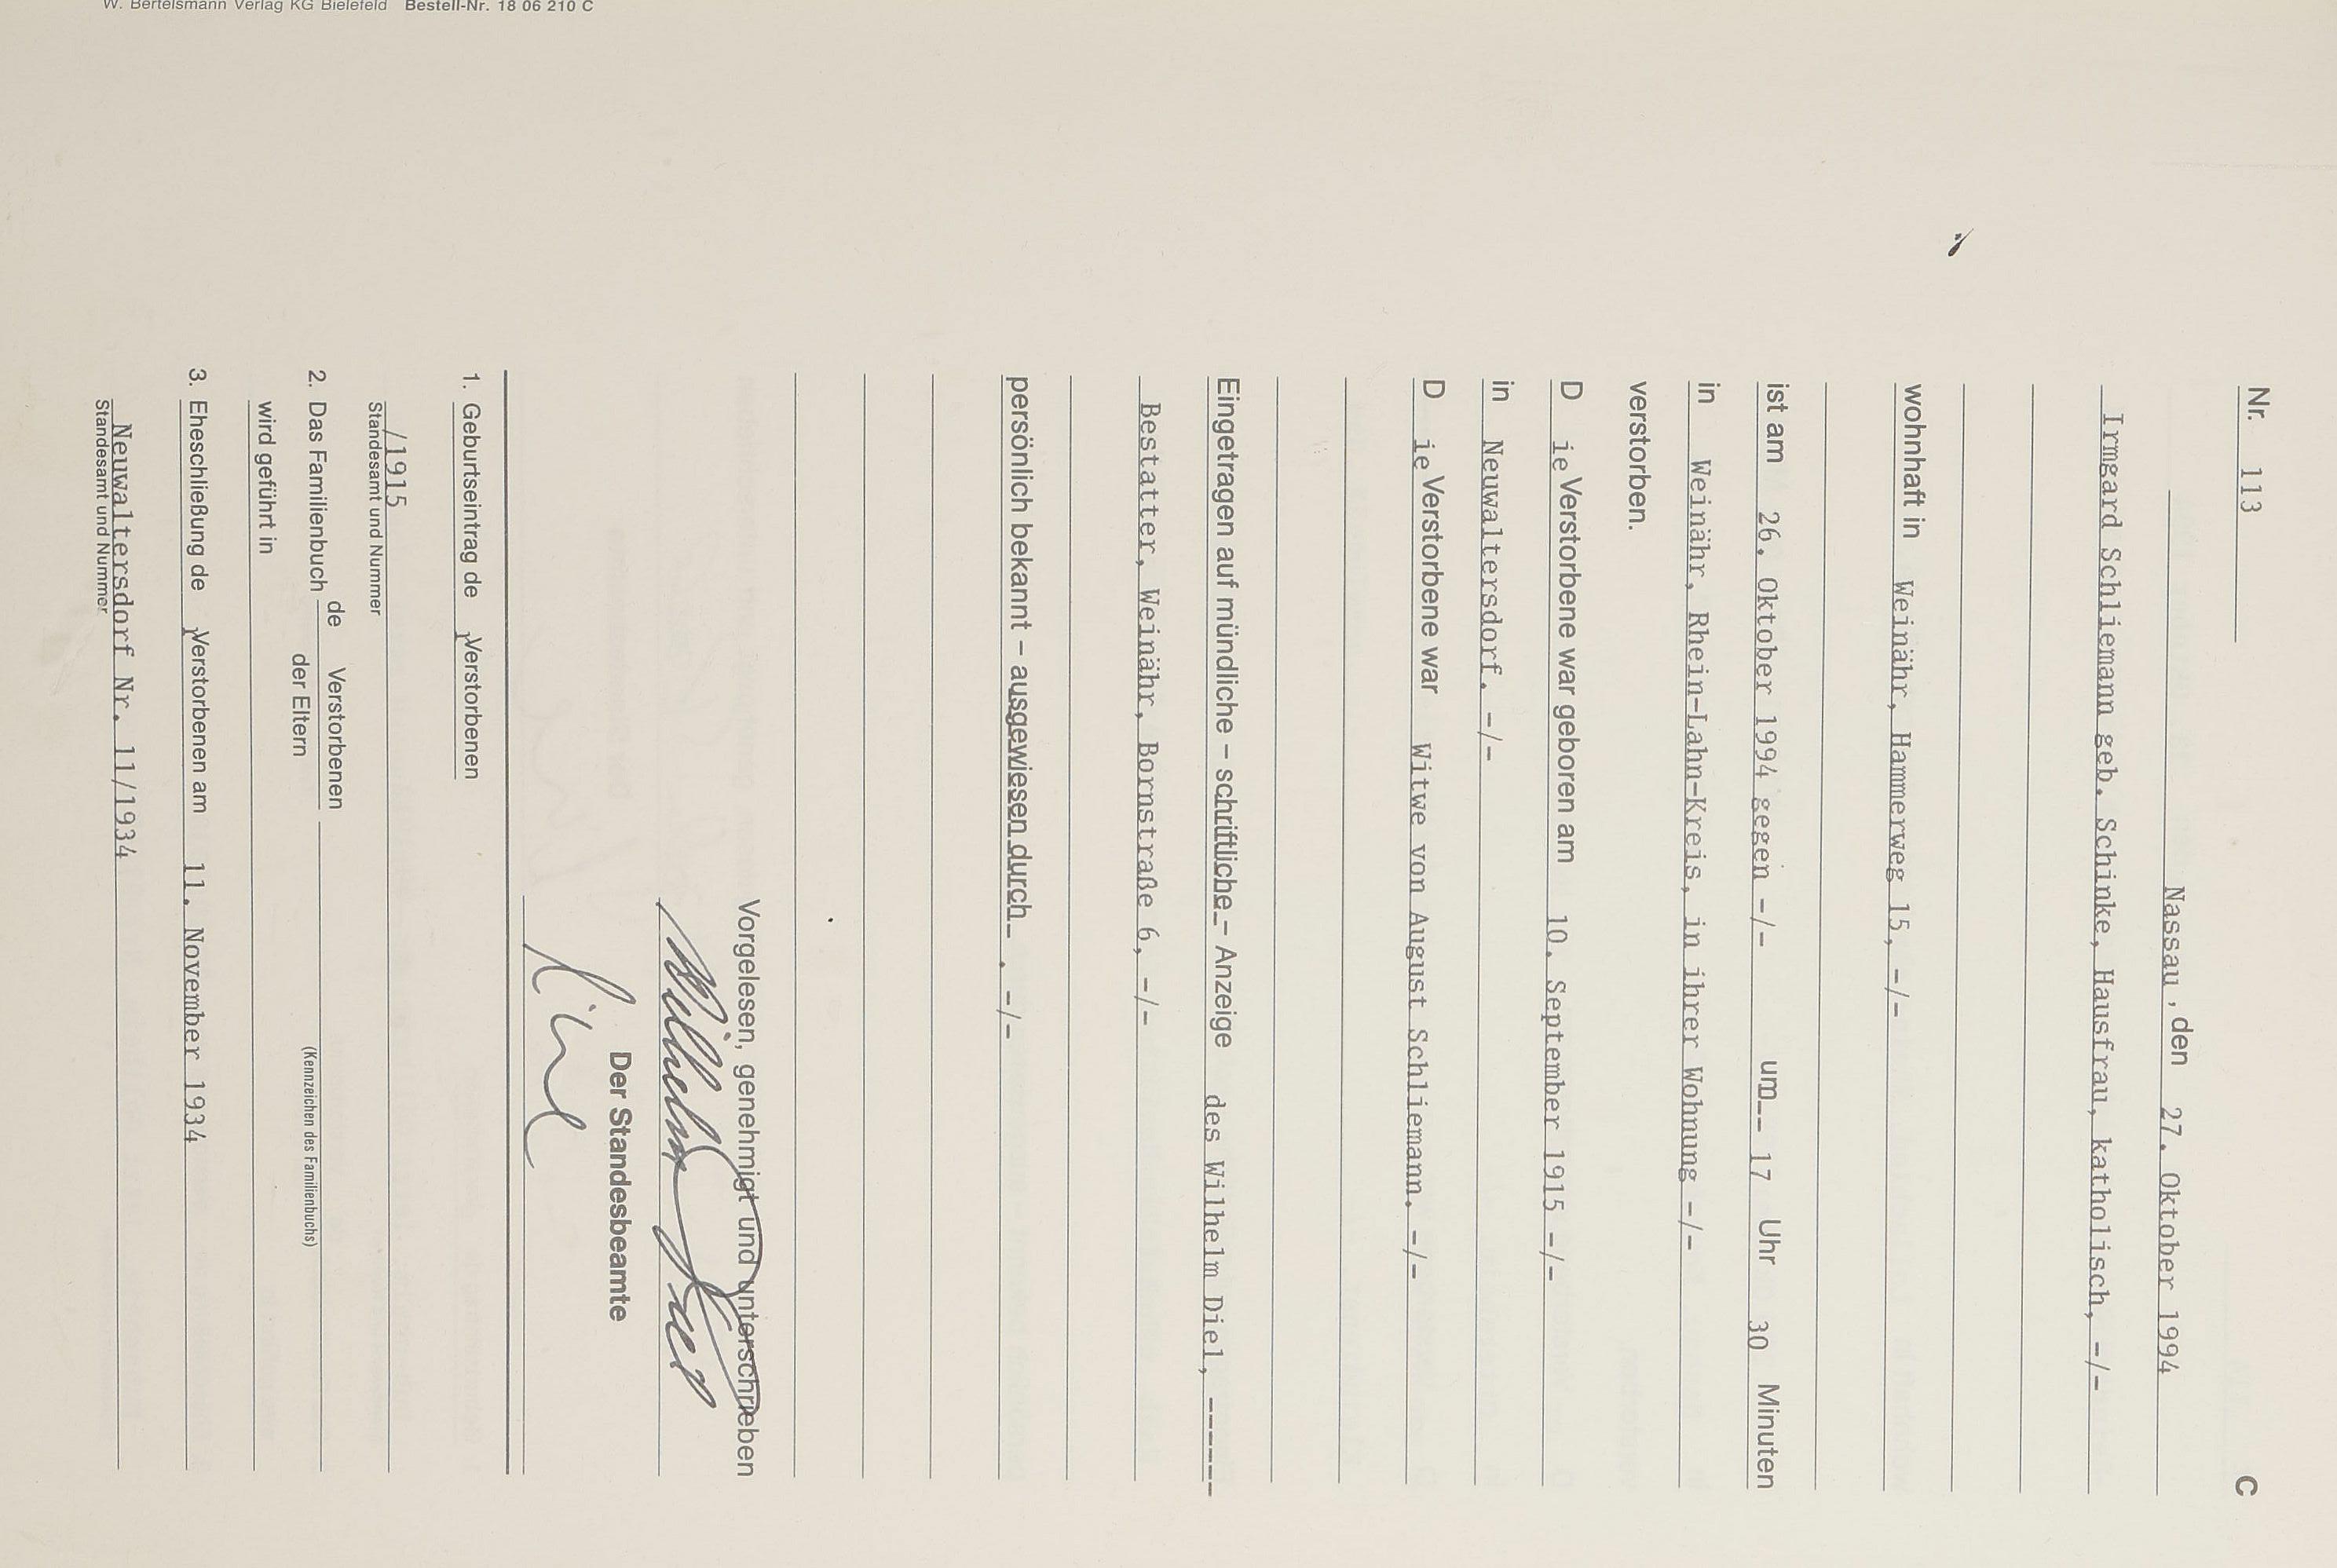 Nr. 113 C
Nassau, den 27. Oktober 1994
Irmgard Schliemann geb. Schinke, Hausfrau, katholisch, -/-
wohnhaft in Weinähr, Hammerweg 15, -/-
ist am 26. Oktober 1994 gegen -/- um-- 17 Uhr 30 Minuten
in Weinähr, Rhein-Lahn-Kreis, in ihrer Wohnung -/-
verstorben.
D ie Verstorbene war geboren am 10. September 1915 -/-
in Neuwaltersdorf. -/-
D ie Verstorbene war Witwe von August Schliemann. -/-
Eingetragen auf mündliche – schriftliche – Anzeige des Wilhelm Diel, ------
Bestatter, Weinähr, Bornstraße 6, -/-
persönlich bekannt – ausgewiesen durch . -/-
Vorgelesen, genehmigt und unterschrieben
Wilhelm Diel
Der Standesbeamte
1. Geburtseintrag de r Verstorbenen
/1915
Standesamt und Nummer
2. Das Familienbuch de Verstorbenen
der Eltern (Kennzeichen des Familienbuchs)
wird geführt in
3. Eheschließung de r Verstorbenen am 11. November 1934
Neuwaltersdorf Nr. 11/1934
Standesamt und Nummer
W. Bertelsmann Verlag KG Bielefeld Bestell-Nr. 18 06 210 C